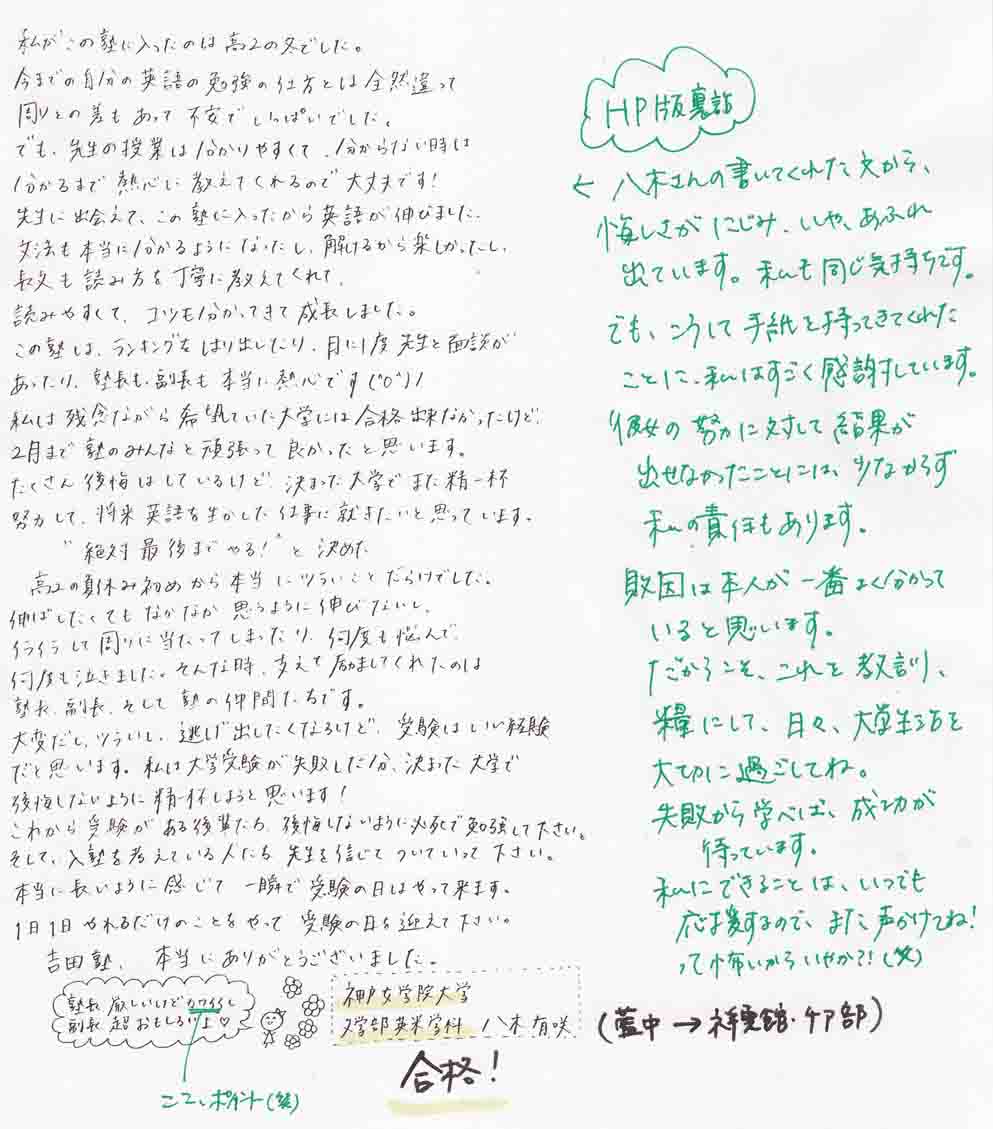 私がこの塾に入ったのは高2の冬でした。
今までの自分の英語の勉強の仕方とは全然違って
周りとの差もあって不安でいっぱいでした。
でも、先生の授業は分かりやすくて、分からない時は
分かるまで熱心に教えてくれるので大丈夫です!
先生に出会えて、この塾に入ったから英語が伸びました。
文法も本当に分かるようになったし、解けるから楽しかったし、
長文も読み方を丁寧に教えてくれて、
読みやすくて、コツも分かってきて成長しました。
この塾は、ランキングをはり出したり、月に1度先生と面談が
あったり、塾長も、副長も本当に熱心です(^O^)/
私は残念ながら希望していた大学には合格出来なかったけど、
2月まで塾のみんなと頑張って良かったと思います。
たくさん後悔はしているけど、決まった大学でまた精一杯
努力して、将来英語を生かした仕事に就きたいと思っています。
"絶対最後までやる!"と決めた
高2の夏休み初めから本当にツラいことだらけでした。
伸ばしたくてもなかなか思うように伸びないし、
イライラして周りに当たってしまったり、何度も悩んで、
何度も泣きました。そんな時、支えて励ましてくれたのは
塾長、副長、そして塾の仲間たちです。
大変だし、ツラいし、逃げ出したくなるけど、受験はいい経験
だと思います。私は大学受験が失敗した分、決まった大学で
後悔しないように精一杯しようと思います!
これから受験がある後輩たち、後悔しないように必死で勉強して下さい。
そして、入塾を考えている人たち、先生を信じてついていって下さい。
本当に長いように感じて一瞬で受験の日はやって来ます。
1日1日やれるだけのことをやって受験の日を迎えて下さい。
吉田塾、本当にありがとうございました。
塾長 厳しいけどカワイイし
副長 超おもしろいよ♡
ここ、ポイント(笑)
神戸女学院大学
文学部英米学科 八木有咲
(藍中→祥雲館・チア部)
合格!
HP版裏話
← 八木さんの書いてくれた文から、
悔しさがにじみ、いや、あふれ
出ています。私も同じ気持ちです。
でも、こうして手紙を持ってきてくれた
ことに、私はすごく感謝しています。
彼女の努力に対して結果が
出せなかったことには、少なからず
私の責任もあります。
敗因は本人が一番よく分かって
いると思います。
だからこそ、これを教訓、
糧にして、日々、大学生活を
大切に過ごしてね。
失敗から学べば、成功が
待っています。
私にできることは、いつでも
応援するので、また声かけてね!
って怖いからいやか?!(笑)